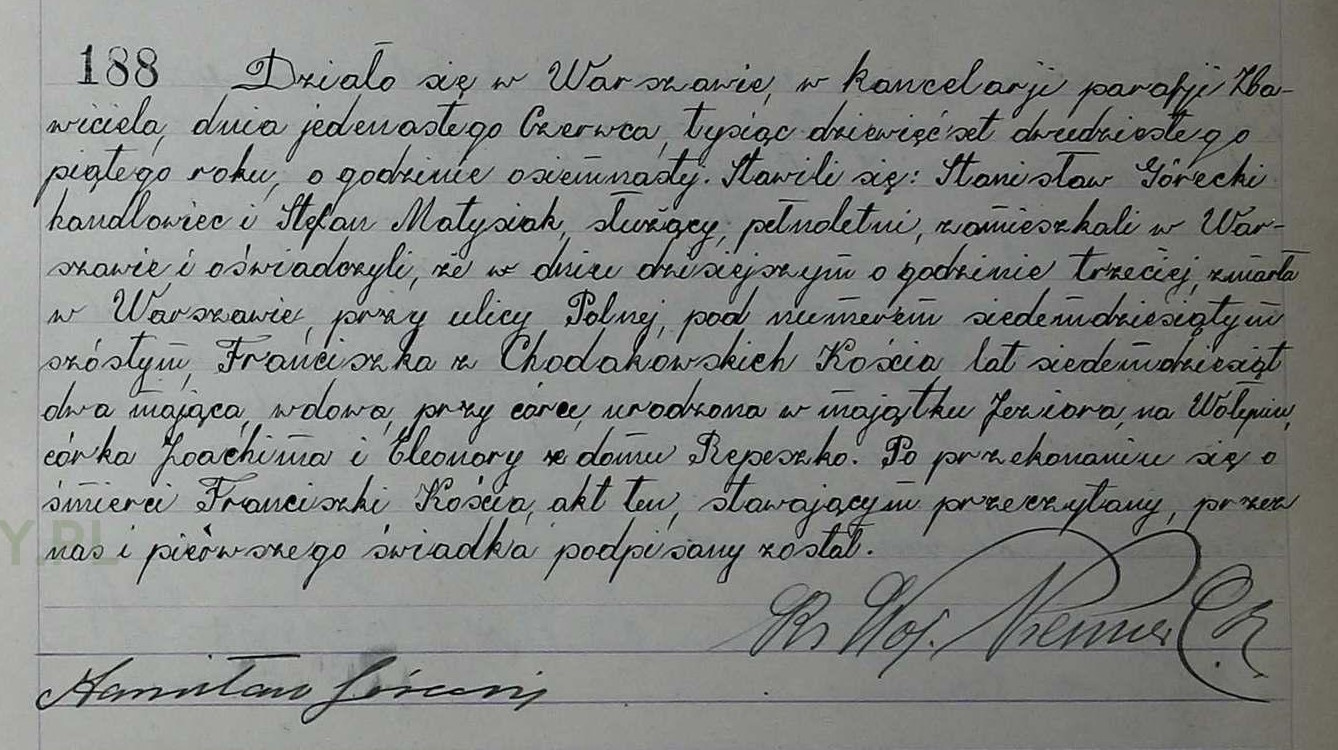 188 Działo się w Warszawie, w kancelarji parafji Zba-
wiciela, dnia jedenastego Czerwca, tysiąc dziewięćset dwudziestego
piątego roku, o godzinie osiemnasty. Stawili się: Stanisław Górecki
handlowiec i Stefan Matysiak, służący, pełnoletni, zamieszkali w War-
szawie i oświadczyli, że w dniu dzisiejszym o godzinie trzeciej, zmarła
w Warszawie, przy ulicy Polnej, pod numerem siedemdziesiątym
szóstym, Franciszka z Chodakowskich Kościa lat siedemdziesiąt
dwa mająca, wdowa, przy córce, urodzona w majątku Jeziora, na Wołyniu,
córka Joachima i Eleonory z domu Repeszko. Po przekonaniu się o
śmierci Franciszki Kościa, akt ten, stawającym przeczytany, przez
nas i pierwszego świadka podpisany został.
Stanisław Górecki
Y.PL